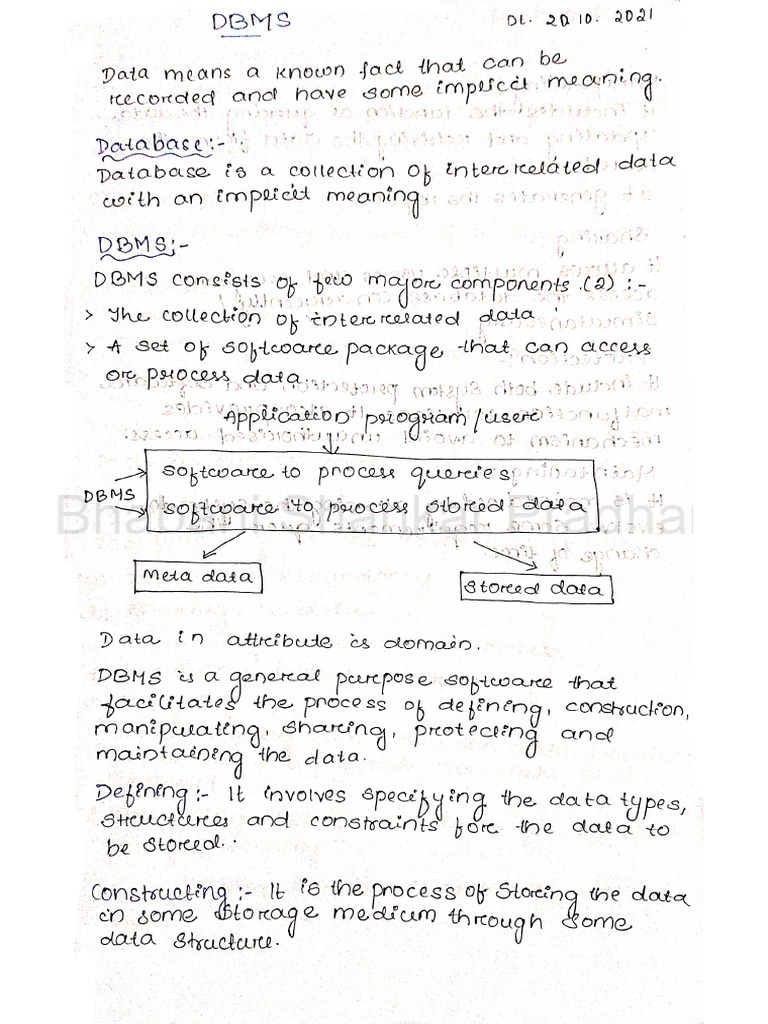 DBMS
Dt. 20.10.2021
Data means a known fact that can be
recorded and have some implicit meaning.
Database:-
Database is a collection of interrelated data
with an implicit meaning
DBMS:-
DBMS consists of few major components.(2) :-
> The collection of interrelated data
> A set of software package that can access
or process data.
Application program/users
DBMS
software to process queries
software to process stored data
Meta data
Stored data
Data in attribute is domain.
DBMS is a general purpose software that
facilitates the process of defining, construction,
manipulating, sharing, protecting and
maintaining the data.
Defining:- It involves specifying the data types,
structures and constraints for the data to
be stored.
Constructing:- It is the process of storing the data
in some storage medium through some
data structure.